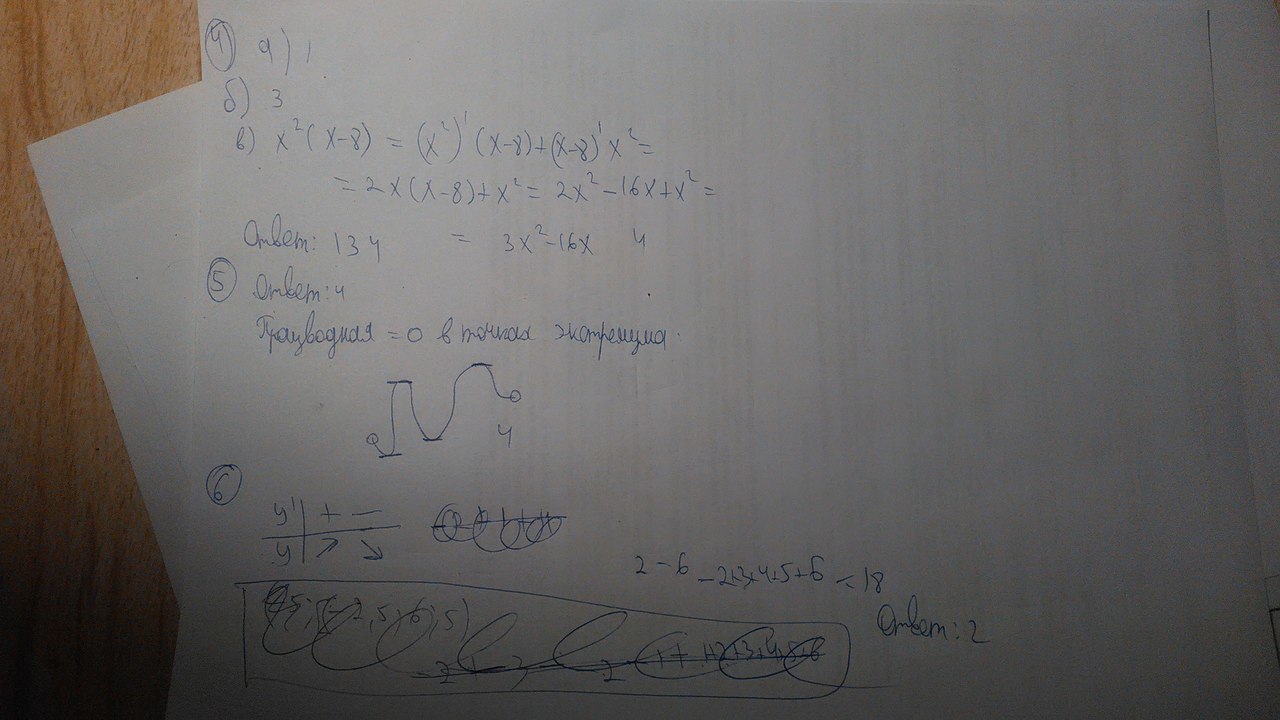 4 а) 1
б) 3
в) x²(x-8) = (x²)'(x-8)+(x-8)'x² =
= 2x(x-8)+x² = 2x²-16x+x² =
Ответ: 134 = 3x²-16x 4
5 Ответ: 4
Працводная = 0 в точках экстремума.
4
6
y' + -
y ↗ ↘
2-6 -2+3+4+5+6 = 18
Ответ: 2